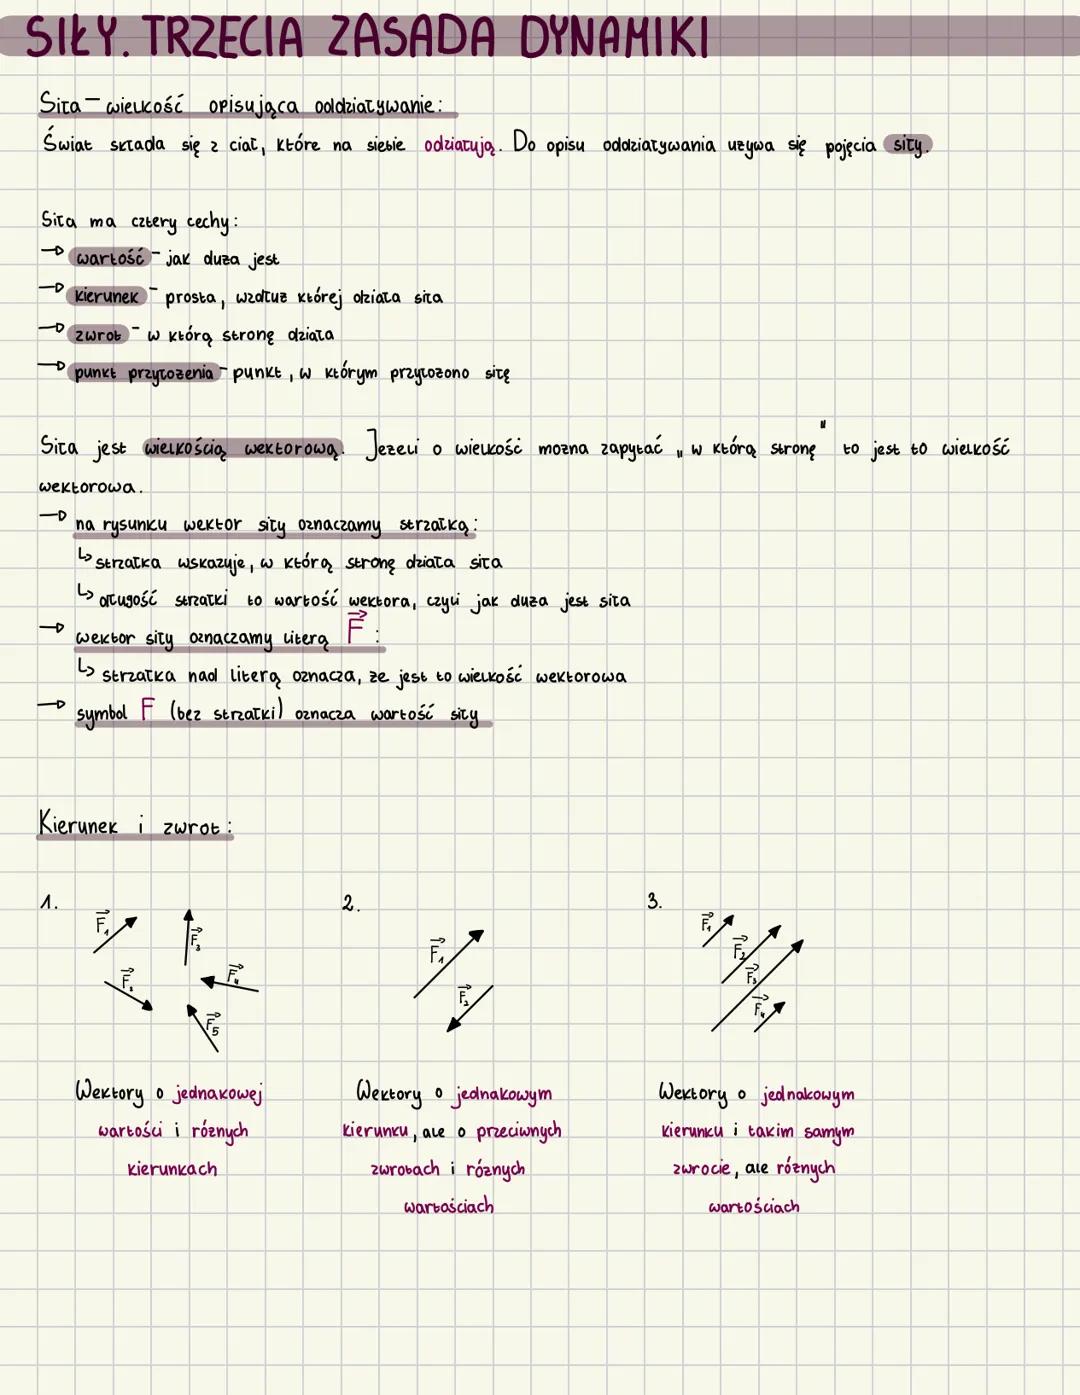 SIŁY. TRZECIA ZASADA DYNAMIKI
Siła – wielkość opisująca oddziaływanie:
Świat składa się z ciał, które na siebie odziałują. Do opisu oddziaływania używa się pojęcia siły.
Siła ma cztery cechy:
→ wartość – jak duża jest
→ kierunek – prosta, wzdłuż której działa siła
→ zwrot – w którą stronę działa
→ punkt przyłożenia – punkt, w którym przyłożono siłę
Siła jest wielkością wektorową. Jeżeli o wielkość można zapytać „w którą stronę" to jest to wielkość
wektorowa.
→ na rysunku wektor siły oznaczamy strzałką:
↳ strzałka wskazuje, w którą stronę działa siła
↳ długość strzałki to wartość wektora, czyli jak duża jest siła
→ wektor siły oznaczamy literą F⃗ :
↳ strzałka nad literą oznacza, że jest to wielkość wektorowa
→ symbol F (bez strzałki) oznacza wartość siły
Kierunek i zwrot:
1.
F⃗₁
F⃗₃
F⃗₂
F⃗₄
F⃗₅
Wektory o jednakowej
wartości i różnych
kierunkach
2.
F⃗₁
F⃗₂
Wektory o jednakowym
kierunku, ale o przeciwnych
zwrotach i różnych
wartościach
3.
F⃗₁
F⃗₂
F⃗₃
F⃗₄
Wektory o jednakowym
kierunku i takim samym
zwrocie, ale różnych
wartościach